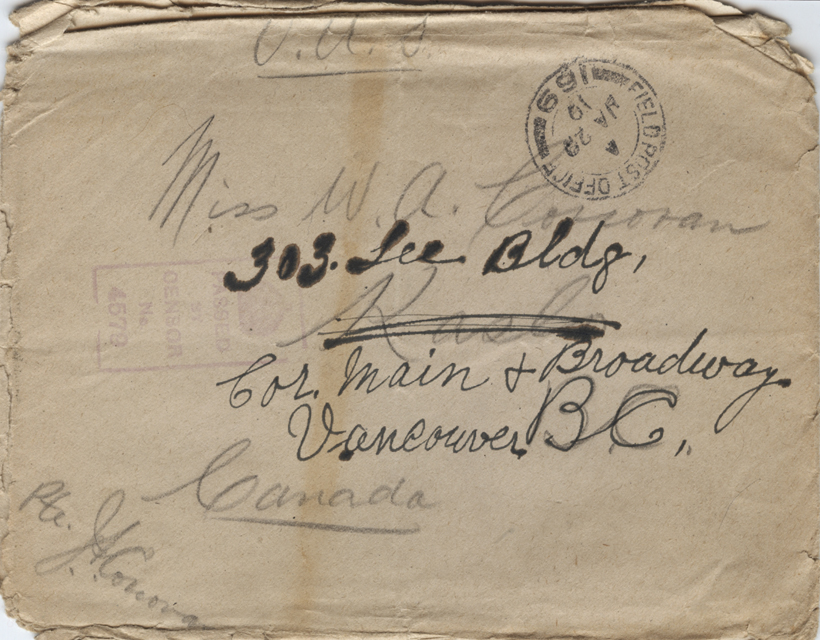 O.A.S.
FIELD POST OFFICE
169
A
JA 29
19
Miss W. A. Corcoran
303. Lee Bldg,
Kaslo
PASSED
BY
CENSOR
No.
4579
Cor. Main & Broadway
Vancouver B.C.,
Canada
Pte.